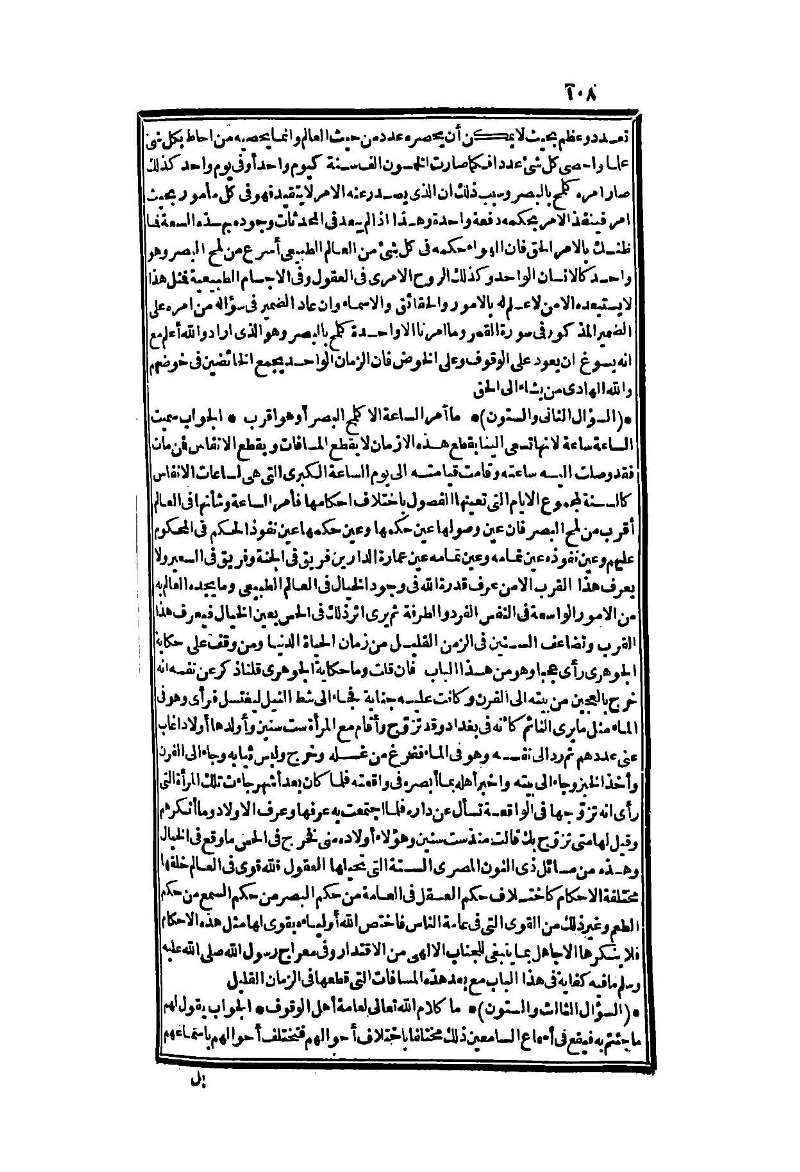 ٢٠٨
تعدد وعظم بحيث لا يمكن أن يحصره عدد من حيث العالم وانما يحصيه من احاط بكل شئ
علما واحصى كل شئ عددا فكما صارت الخمسون الف سنة كيوم واحد أو فى يوم واحد كذلك
صار امره كلمح بالبصر وسبب ذلك ان الذى يصدر عنه الامر لا يتقيد فهو فى كل مأمور بحيث
امر فينفذ الامر بحكمه دفعة واحدة وهذا اذا لم يبعد فى المحدثات وجوده بهذه السعة فما
ظنك بالامر الحق فان الهواء حكمه فى كل شئ من العالم الطبيعى أسرع من لمح البصر وهو
واحد كالانسان الواحد وكذلك الروح الامرى فى العقول وفى الاجسام الطبيعية فمثل هذا
لا يستبعده الا من لا علم له بالامور والحقائق والاسماء وان عاد الضمير فى سؤاله من امره على
الضمير المذكور فى سورة القمر وما امرنا الا واحدة كلمح بالبصر وهو الذى اراد والله أعلم مع
انه يسوغ ان يعود على الوقوف وعلى الخوض فان الزمان الواحد يجمع الخائضين فى خوضهم
والله الهادى من يشاء الى الحق
* (السؤال الثانى والستون) * ما أمر الساعة الا كلمح البصر أو هو اقرب * الجواب سميت
الساعة ساعة لانها تسعى الينا بقطع هذه الازمان لا بقطع المسافات وبقطع الانفاس فمن مات
فقد وصلت اليه ساعته وقامت قيامته الى يوم الساعة الكبرى التى هى لساعات الانفاس
كالسنة لمجموع الايام التى تعينها الفصول باختلاف احكامها فأمر الساعة وشأنها فى العالم
أقرب من لمح البصر فان عين وصولها عين حكمها وعين حكمها عين نفوذ الحكم فى المحكوم
عليهم وعين نفوذه عين تمامه وعين تمامه عين عمارة الدارين فريق فى الجنة وفريق فى السعير ولا
يعرف هذا القرب الا من عرف قدرة الله فى وجود الخيال فى العالم الطبيعى وما يجده العالم به
من الامور الواسعة فى النفس الفرد والطرفة ثم يرى اثر ذلك فى الحس بعين الخيال فيعرف هذا
القرب وتضاعف السنين فى الزمن القليل من زمان الحياة الدنيا ومن وقف على حكاية
الجوهرى رأى عجبا وهو من هذا الباب فان قلت وما حكاية الجوهرى قلنا ذكر عن نفسه انه
خرج بالعجين من بيته الى الفرن وكانت عليه جنابة فجاء الى شط النيل ليغتسل فرأى وهو فى
الماء مثل ما يرى النائم كأنه فى بغداد وقد تزوج وأقام مع المرأة ست سنين وأولدها أولادا غاب
عنى عددهم ثم رد الى نفسه وهو فى الماء ففرغ من غسله وخرج ولبس ثيابه وجاء الى الفرن
وأخذ الخبز وجاء الى بيته واخبر أهله بما أبصره فى واقعته فلما كان بعد أشهر جاءت تلك المرأة التى
رأى انه تزوجها فى الواقعة تسأل عن داره فلما اجتمعت به عرفها وعرف الاولاد وما أنكرهم
وقيل لها متى تزوج بك قالت منذ ست سنين وهؤلاء أولاده منى فخرج فى الحس ما وقع فى الخيال
وهذه من مسائل ذى النون المصرى الستة التى تحيلها العقول فلله قوى فى العالم خلقها
مختلفة الاحكام كاختلاف حكم العقل فى العامة من حكم البصر من حكم السمع من حكم
الطعم وغير ذلك من القوى التى فى عامة الناس فاختص الله أولياءه بقوى لها مثل هذه الاحكام
فلا ينكرها الا جاهل بما ينبغى للجناب الالهى من الاقتدار وفى معراج رسول الله صلى الله عليه
وسلم ما فيه كفاية فى هذا الباب مع بعد هذه المسافات التى قطعها فى الزمان القليل
* (السؤال الثالث والستون) * ما كلام الله تعالى لعامة أهل الوقوف * الجواب يقول لهم
ما جئتم به فيقع فى أسماع السامعين ذلك مختلفا باختلاف أحوالهم فتختلف أحوالهم باستماعهم
بل